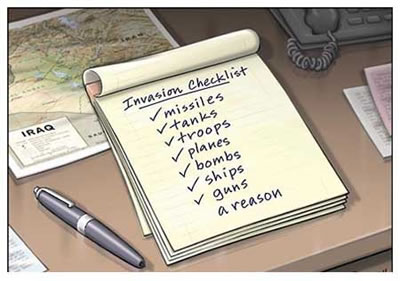 IRAQ
Invasion Checklist
✓missiles
✓tanks
✓troops
✓planes
✓bombs
✓ships
✓guns
a reason